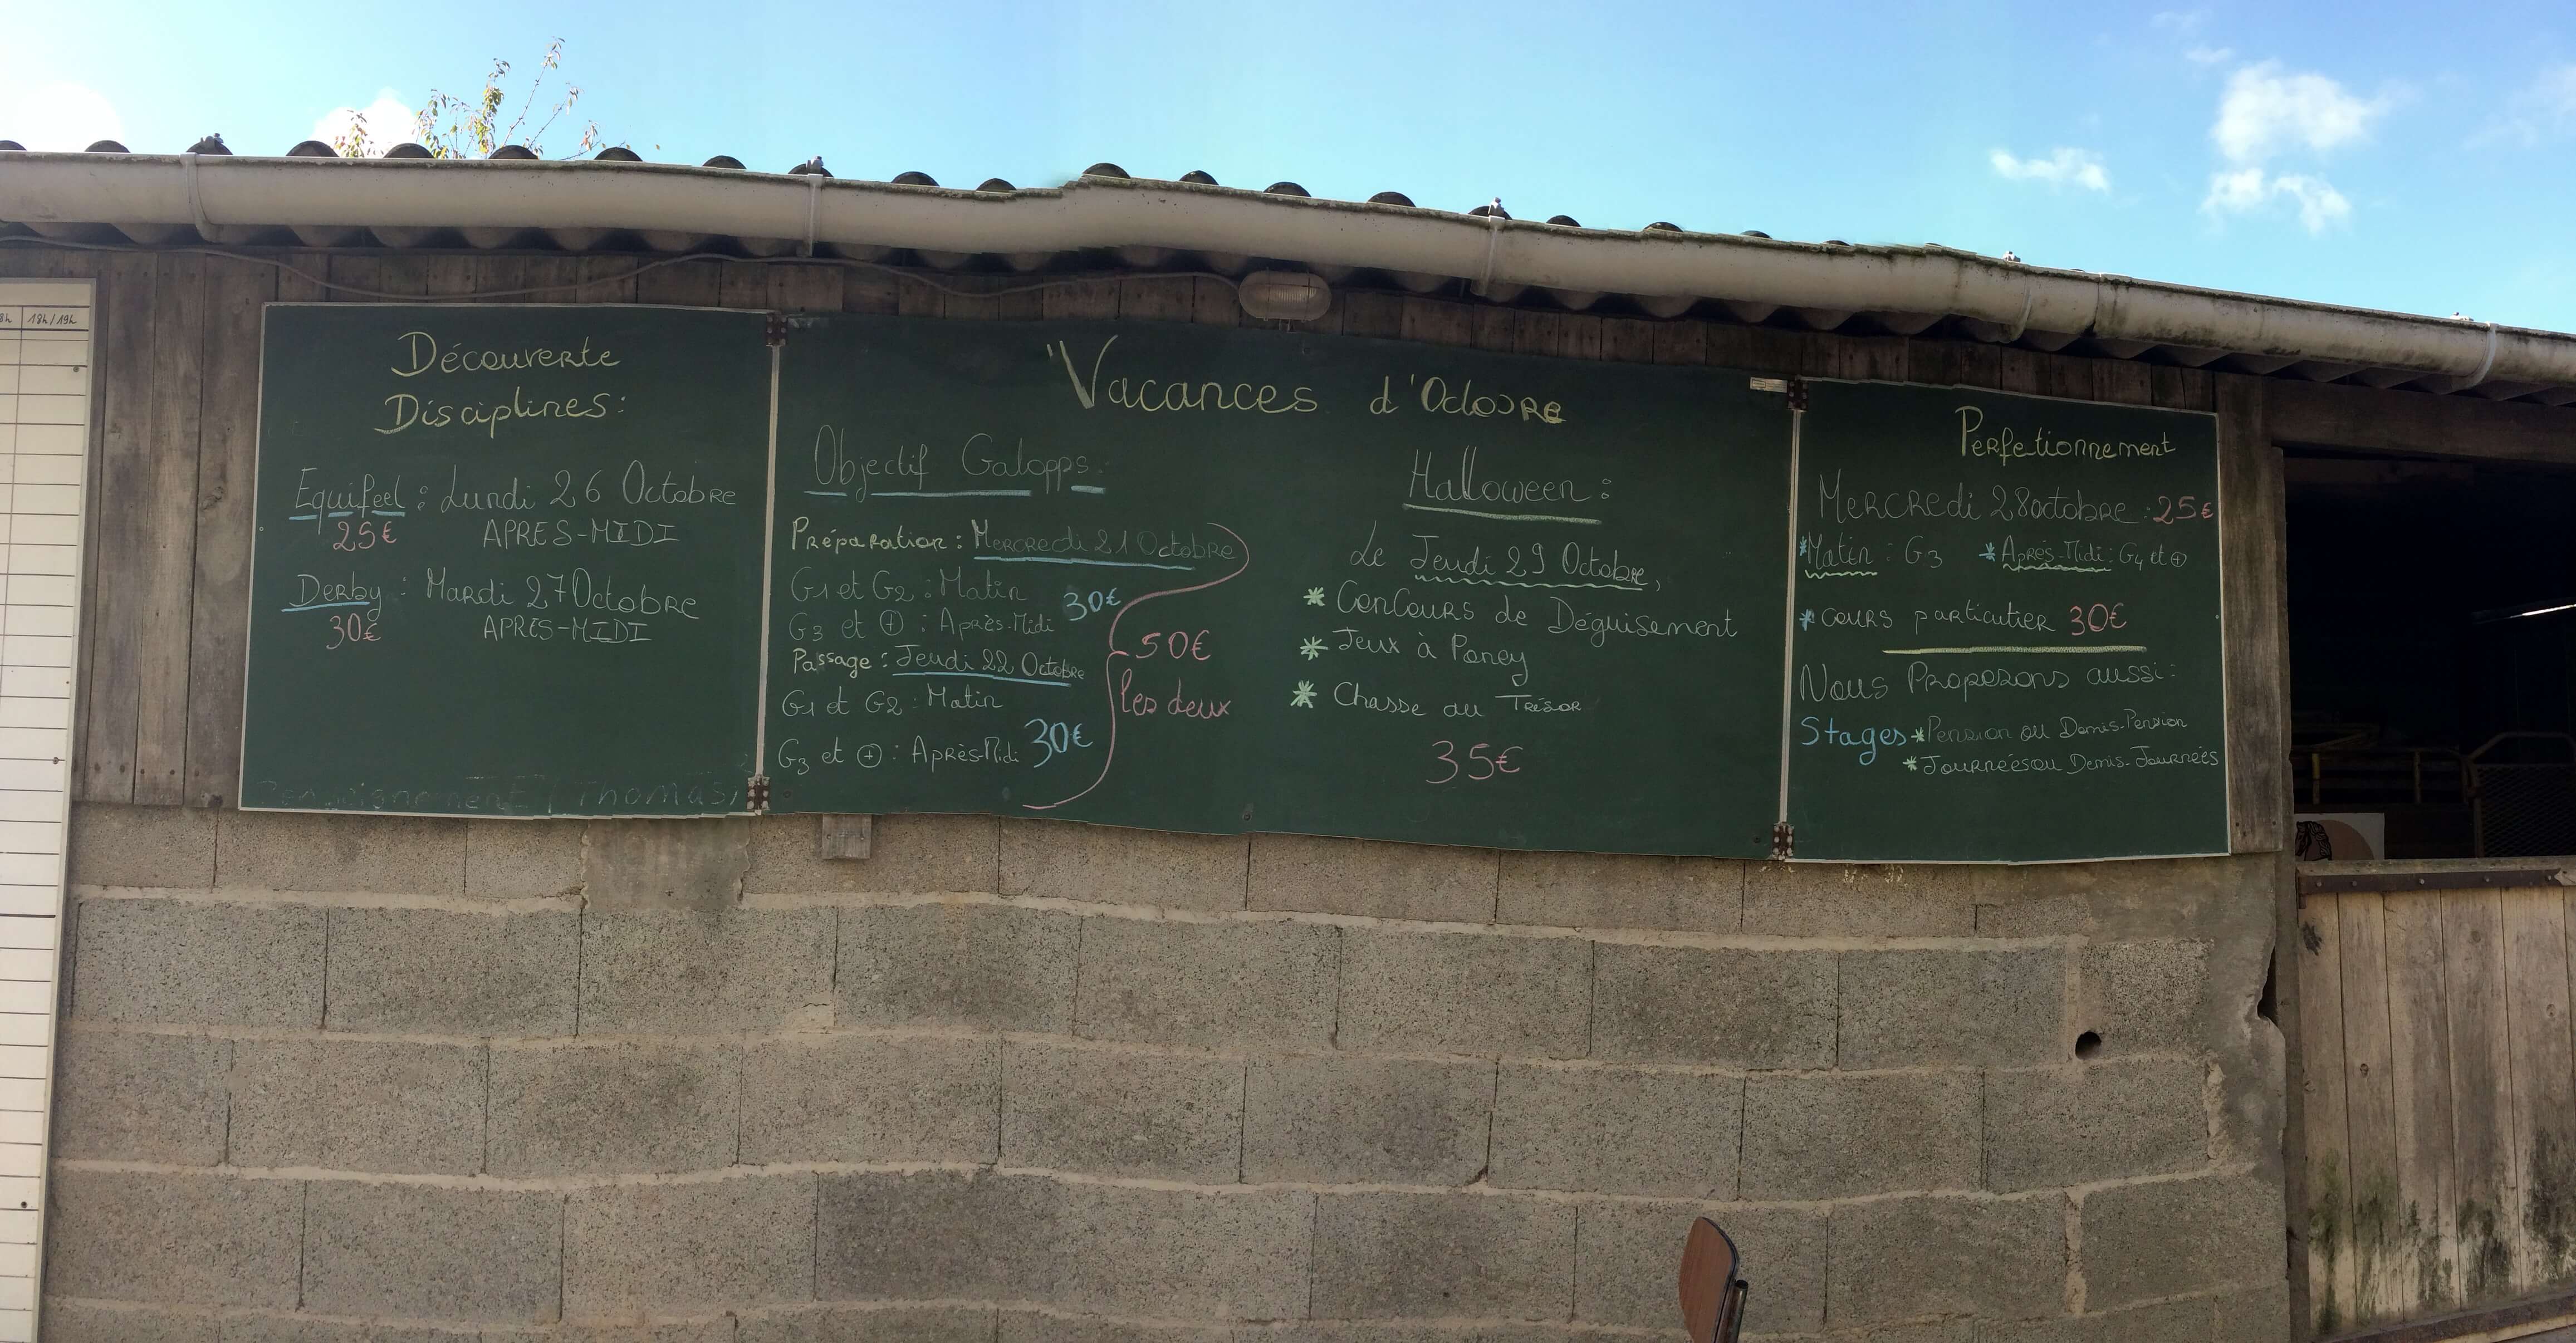 18h/19h
Découverte
Disciplines:
Equifeel : Lundi 26 Octobre
25€ APRES-MIDI
Derby : Mardi 27 Octobre
30€ APRES-MIDI
Vacances d'Octobre
Objectif Galopps:
Préparation : Mercredi 21 Octobre
G1 et G2 : Matin
30€
G3 et + : Après-Midi
Passage : Jeudi 22 Octobre
G1 et G2 : Matin
30€
G3 et + : Après-Midi
50€
les deux
Halloween :
Le Jeudi 29 Octobre,
* Concours de Déguisement
* Jeux à Poney
* Chasse au Trésor
35€
Perfetionnement
Mercredi 28 octobre : 25€
*Matin : G3 *Après-Midi : G4 et +
* cours particulier 30€
Nous Proposons aussi:
Stages * Pension ou Demis-Pension
* Journées ou Demis-Journées